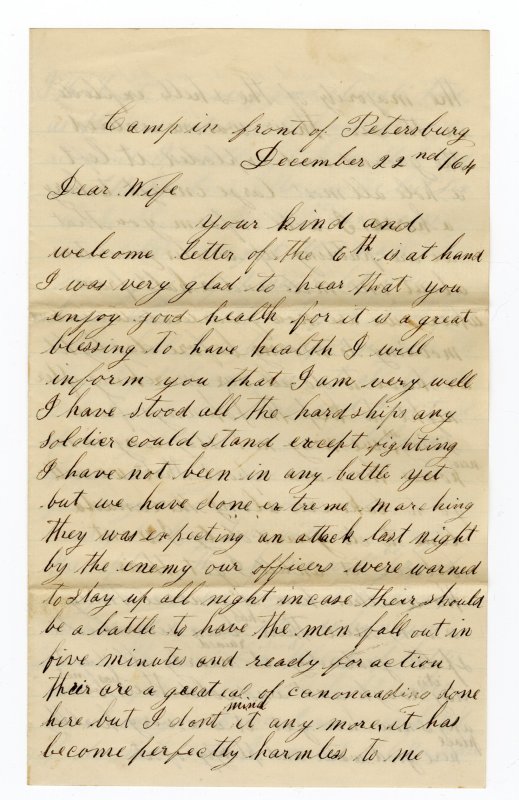 Camp in front of Petersburg
December 22nd /64
Dear Wife
your kind and
welcome letter of the 6th is at hand
I was very glad to hear that you
enjoy good health for it is a great
blessing to have health I will
inform you that I am very well
I have stood all the hardships any
soldier could stand except fighting
I have not been in any battle yet
but we have done extreme marching
they was expecting an attack last night
by the enemy our officers were warned
to stay up all night incase their should
be a battle to have the men fall out in
five minutes and ready for action
their are a great eal of canonaading done
here but I dont mind it any more, it has
become perfectly harmless to me